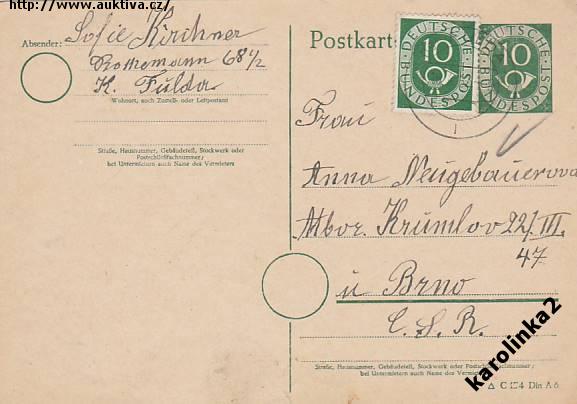 http://www.auktiva.cz/
Absender:
Sofie Kirchner
Rothemann 68 1/2
K. Fulda
Wohnort, auch Zustell- oder Leitpostamt
Straße, Hausnummer, Gebäudeteil, Stockwerk oder
Postschließfachnummer;
bei Untermietern auch Name des Vermieters
Postkart
DEUTSCHE
10
BUNDESPOST
DEUTSCHE
10
BUNDESPOST
Frau
Anna Neugebauerova
Mor. Krumlov 22/III.
47
u Brno
C. S. R.
Straße, Hausnummer, Gebäudeteil, Stockwerk oder Postschließfachnummer;
bei Untermietern auch Name des Vermieters
C 154 Din A 6
karolinka2